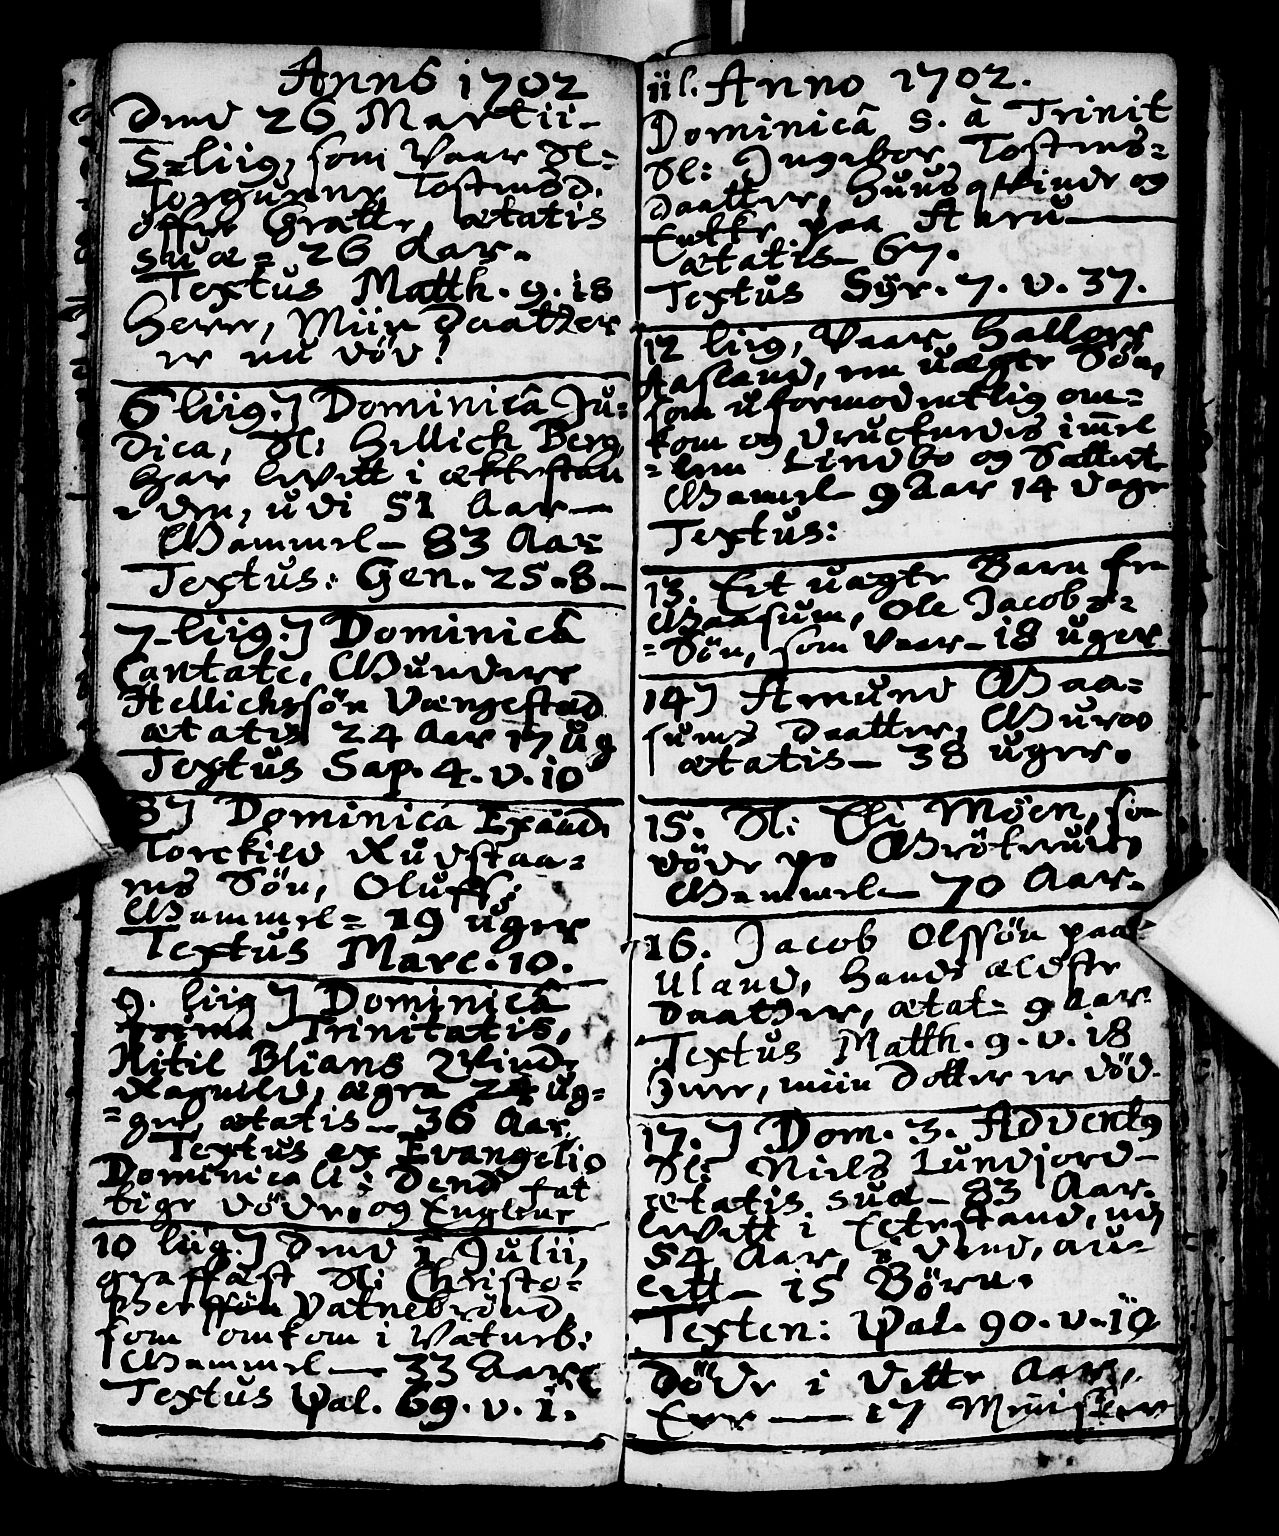 Anno 1702
Dend 26 Martii -
5 = liig, som Vaar Sl:
Torgunne Tostensd.
offre Gratte, ætatis
suæ = 26 Aar.
Textus Matth. 9. 18
Herre, Miin Daatter
er nu død!
6 liig.] Dominicâ Ju:
dica, Sl: Hellich Berg,
har lewitt i ækkestan
den, udi 51 Aar —
Gammel — 83 Aar
Textus: Gen. 25. 8 —
7 - liig.] Dominicâ
Cantate, Gunders
Hellichssön Vængestad
ætatis 24 Aar 17 ug
Textus Sap. 4. v. 10
8] Dominica Exaud.
Torckild Rudstaa=
ens Sön, Oluff;
Gammel = 19 uger
Textus Marc. 10.
9. liig] Dominicâ
prima Trinitatis,
Kitil Blians Qvinde
Ragnild, ægra 24 ug=
=ger, ætatis — 36 Aar,
Textus ex Evangelio
Dominicali: Dend fat
tige döde, og Englene
10 liig.] dend 2 Julii,
graffæst Sl: Christo=
pherssön Vatnebrönd,
som omkom i Vatnet:
Gammel — 33 Aar
Textus Psal. 69. v. 1.
11. Anno 1702.
Dominicâ 5. à Trinit
Sl: Ingebor Tostens=
daatter, Huus qvinde og
Enke paa
ætatis — 67.
Textus Syr. 7. v. 37.
12 liig, Vaar Hallors
Aasland, en uægte Sön,
som uformodentlig om=
kom og druckendis imel
=lem Lindbo og Sætteret
Gamel 9 Aar 14 dage
Textus:
13. Eet uægte Barn fra
Gaasum, Ole Jacobs=
=Sön, som Vaar — 18 uger
14] Amund Gaa=
sums Daatter, Guroo
ætatis — 38 uger.
15. Sl: Eli Möen, som
döde po Grökerud,
Gammel — 70 Aar.
16. Jacob Olssön paa
Uland, hands ældste
Daatter, ætat = 9 Aar
Textus Matth. 9. v. 18
Herre, miin Dotter er död.
17.] Dom. 3. Adventus
Sl: Niels Lundjord —
ætatis suæ — 83 Aar.
lewitt i Ectestand, udj
54 Aar, i dend, au=
lett — 15 Börn.
Texten: Psal. 90. v. 10
Döde i dette Aar,
Eere — 17 Meniskeer